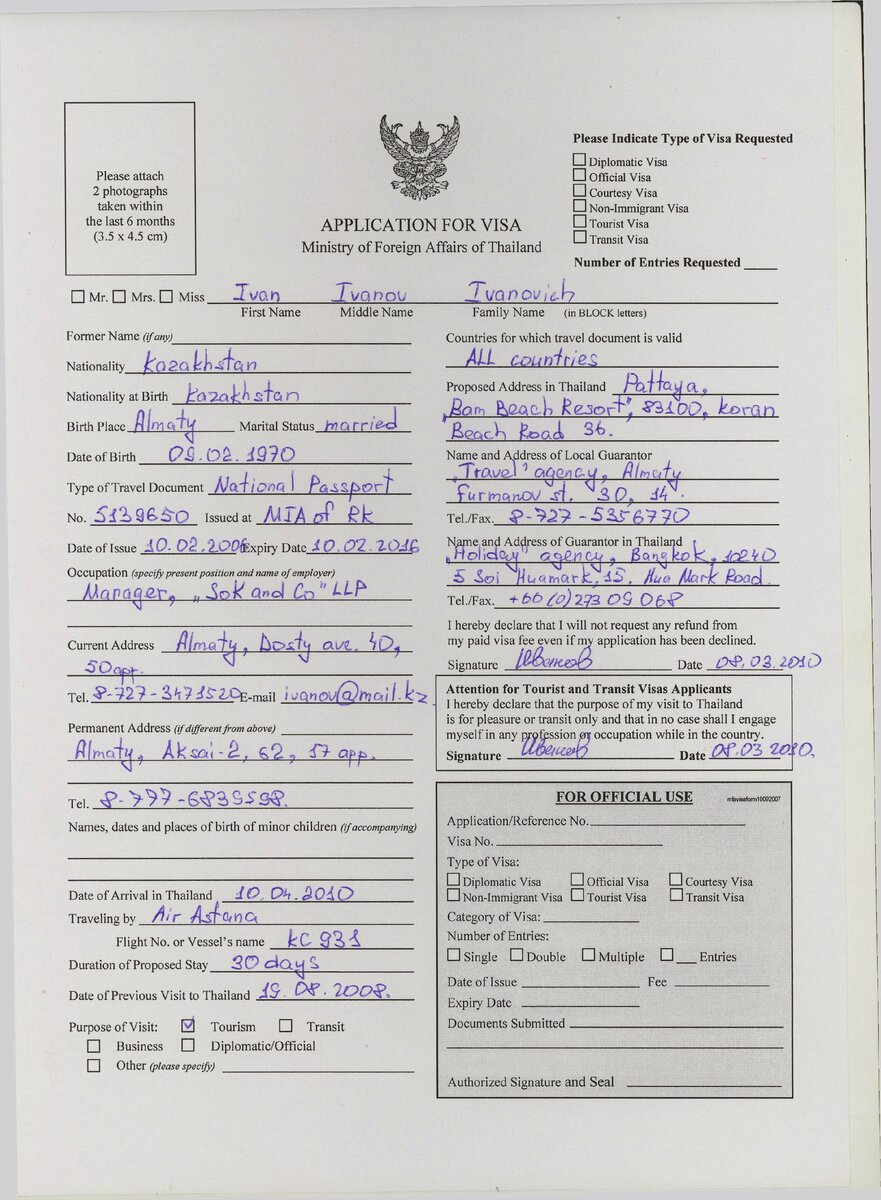 Please attach
2 photographs
taken within
the last 6 months
(3.5 x 4.5 cm)
APPLICATION FOR VISA
Ministry of Foreign Affairs of Thailand
Please Indicate Type of Visa Requested
Diplomatic Visa
Official Visa
Courtesy Visa
Non-Immigrant Visa
Tourist Visa
Transit Visa
Number of Entries Requested
Mr. Mrs. Miss Ivan Ivanov Ivanovich
First Name Middle Name Family Name (in BLOCK letters)
Former Name (if any)
Nationality Kazakhstan
Nationality at Birth Kazakhstan
Birth Place Almaty Marital Status married
Date of Birth 09.02.1970
Type of Travel Document National Passport
No. 5139650 Issued at MIA of RK
Date of Issue 10.02.2006 Expiry Date 10.02.2016
Occupation (specify present position and name of employer)
Manager, „Sok and Co" LLP
Current Address Almaty, Dosty ave. 40,
50 apt.
Tel. 8-727-3471520 E-mail ivanov@mail.kz.
Permanent Address (if different from above)
Almaty, Aksai-2, 62, 17 app.
Tel. 8-777-6839598.
Names, dates and places of birth of minor children (if accompanying)
Date of Arrival in Thailand 10.04.2010
Traveling by Air Astana
Flight No. or Vessel's name KC 931
Duration of Proposed Stay 30 days
Date of Previous Visit to Thailand 19.08.2008.
Purpose of Visit: Tourism Transit
Business Diplomatic/Official
Other (please specify)
Countries for which travel document is valid
ALL countries
Proposed Address in Thailand Pattaya,
„Bam Beach Resort", 83100, Koran
Beach Road 36.
Name and Address of Local Guarantor
„Travel" agency, Almaty
Furmanov st. 30, 14.
Tel./Fax. 8-727-5356770
Name and Address of Guarantor in Thailand
„Holiday" agency, Bangkok, 10240
5 Soi Huamark, 15. Hua Mark Road.
Tel./Fax. +66 (0) 273 09 068
I hereby declare that I will not request any refund from
my paid visa fee even if my application has been declined.
Signature Date 08.03.2010
Attention for Tourist and Transit Visas Applicants
I hereby declare that the purpose of my visit to Thailand
is for pleasure or transit only and that in no case shall I engage
myself in any profession or occupation while in the country.
Signature Date 08.03 2010.
FOR OFFICIAL USE mfavisaform10092007
Application/Reference No.
Visa No.
Type of Visa:
Diplomatic Visa Official Visa Courtesy Visa
Non-Immigrant Visa Tourist Visa Transit Visa
Category of Visa:
Number of Entries:
Single Double Multiple Entries
Date of Issue Fee
Expiry Date
Documents Submitted
Authorized Signature and Seal